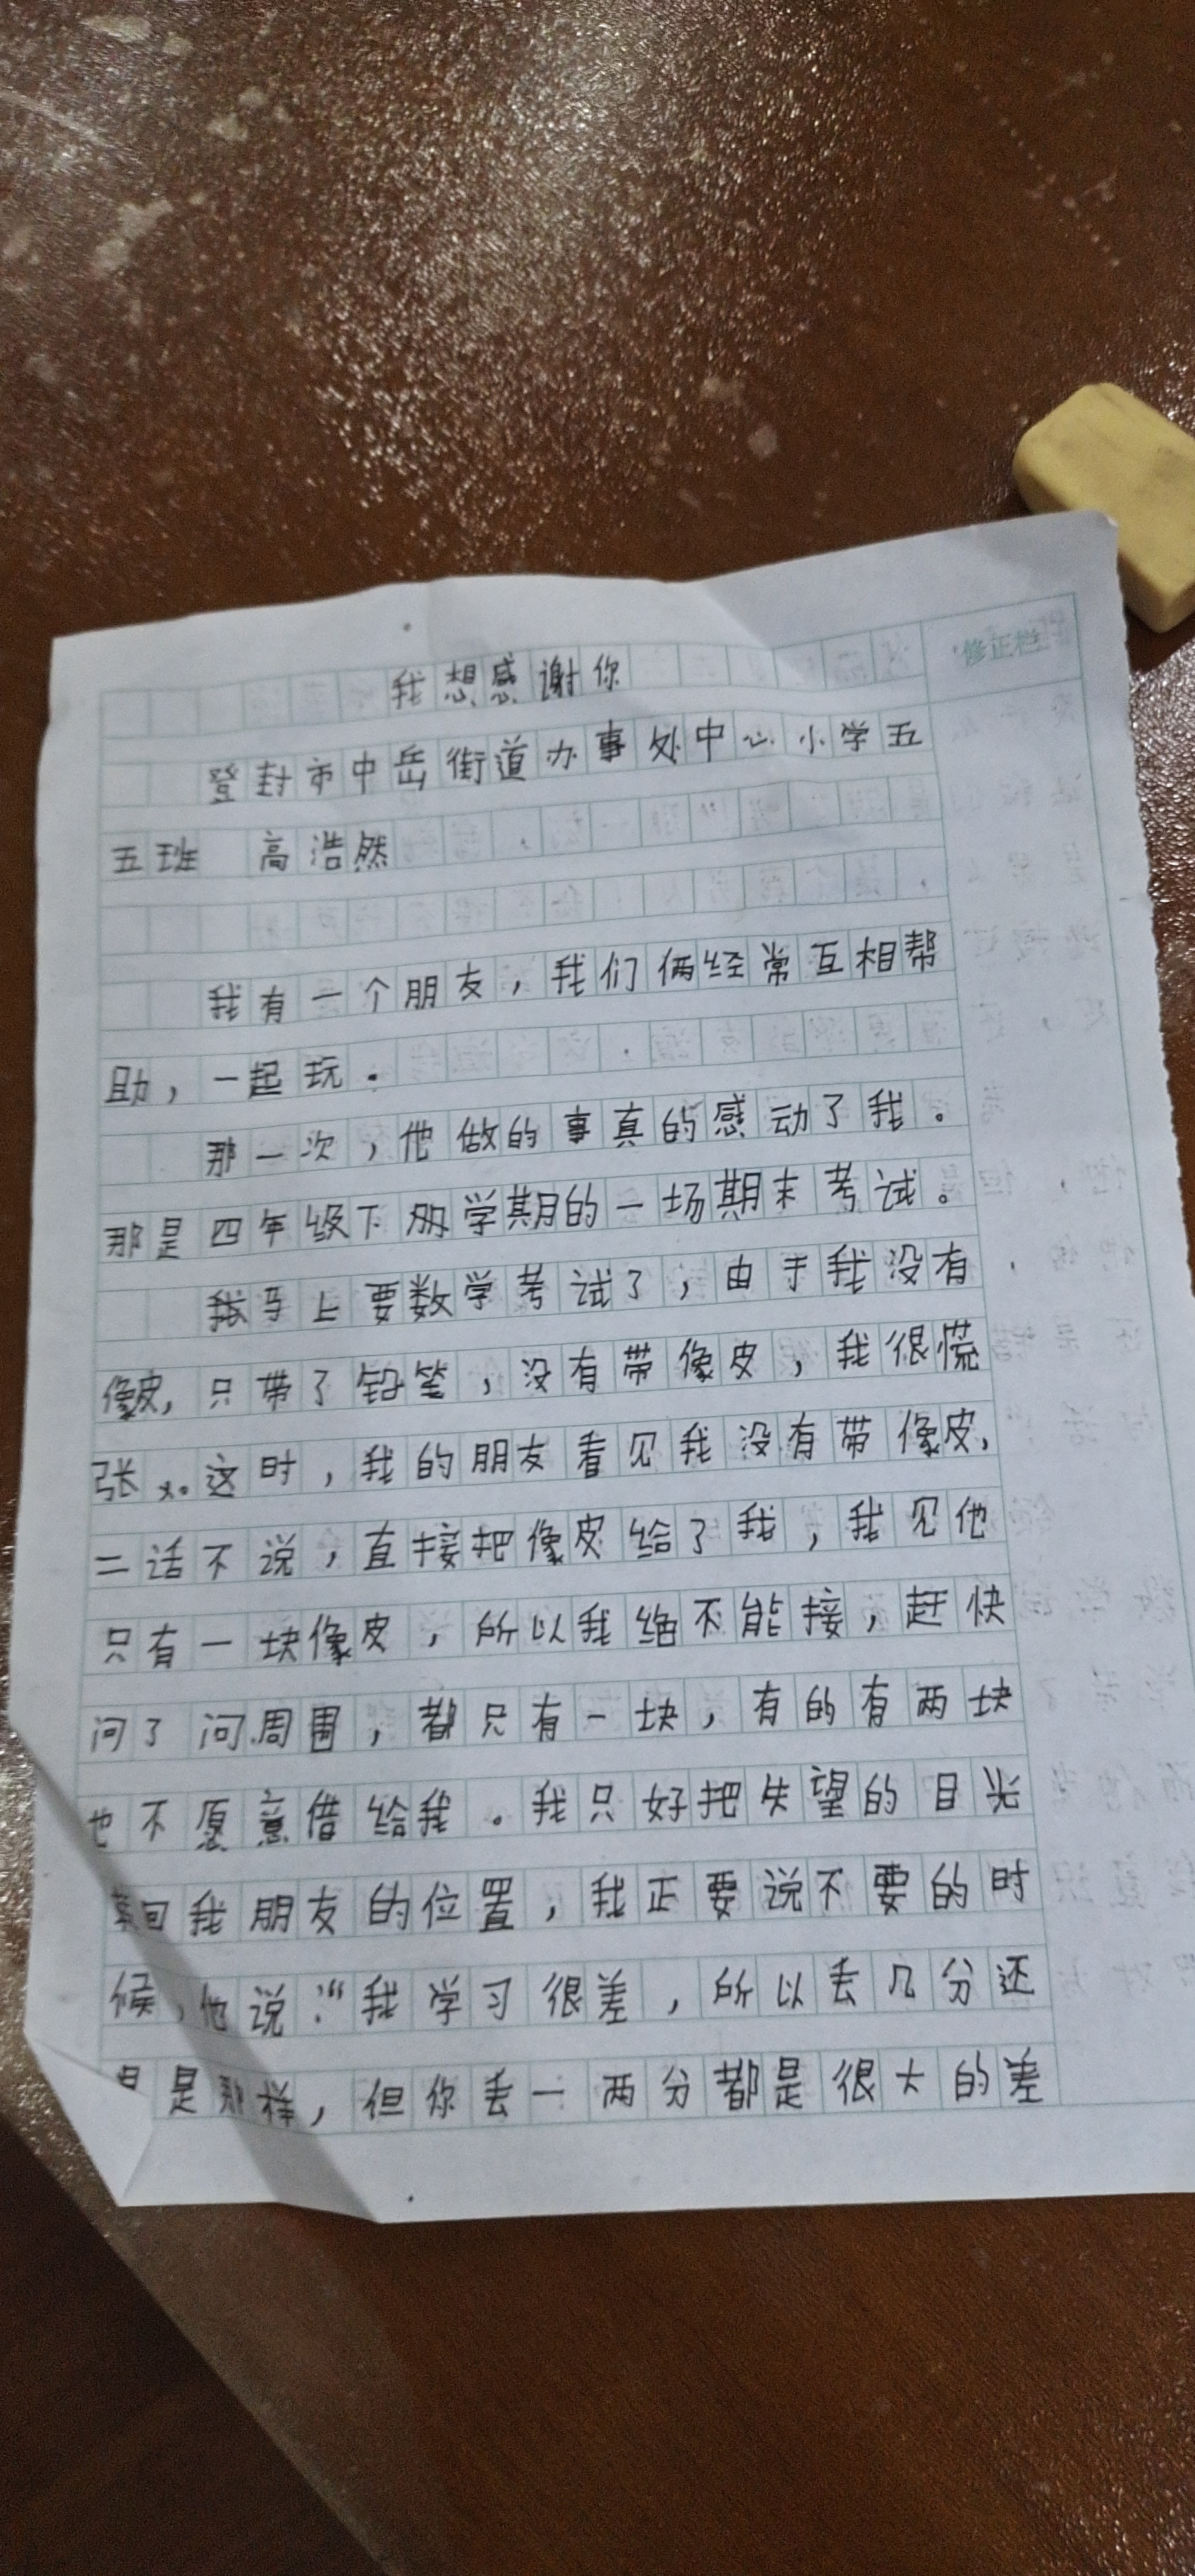 修正栏
我想感谢你
登封市中岳街道办事处中心小学五
五班 高浩然
我有一个朋友，我们俩经常互相帮
助，一起玩。
那一次，他做的事真的感动了我。
那是四年级下册学期的一场期末考试。
我马上要数学考试了，由于我没有
像皮，只带了铅笔，没有带像皮，我很慌
张。这时，我的朋友看见我没有带像皮，
二话不说，直接把像皮给了我，我见他
只有一块像皮，所以我绝不能接，赶快
问了问周围，都只有一块，有的有两块
也不愿意借给我。我只好把失望的目光
我朋友的位置，我正要说不要的时
候，他说：“我学习很差，所以丢几分还
是那样，但你丢一两分都是很大的差